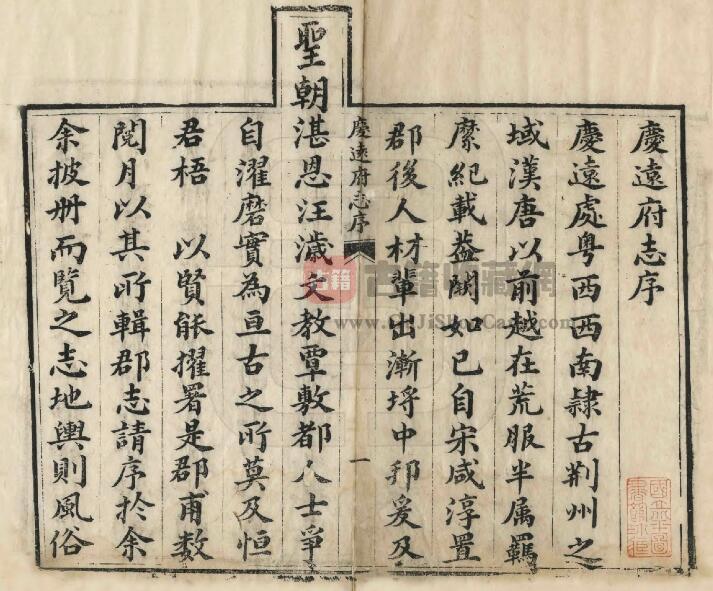 慶遠府志序
慶遠處粤西西南隸古荆州之
域漢唐以前越在荒服半属羈
縻紀載葢闕如已自宋咸淳置
郡後人材輩出漸埒中邦爰及
慶遠府志序
一
聖朝湛恩汪濊文教覃敷都人士爭
自濯磨實為亘古之所莫及恒
君梧 以賢能擢署是郡甫数
閱月以其所輯郡志請序於余
余披册而覽之志地輿則風俗
古籍
古籍收藏網
www.GuJiShouCang.com